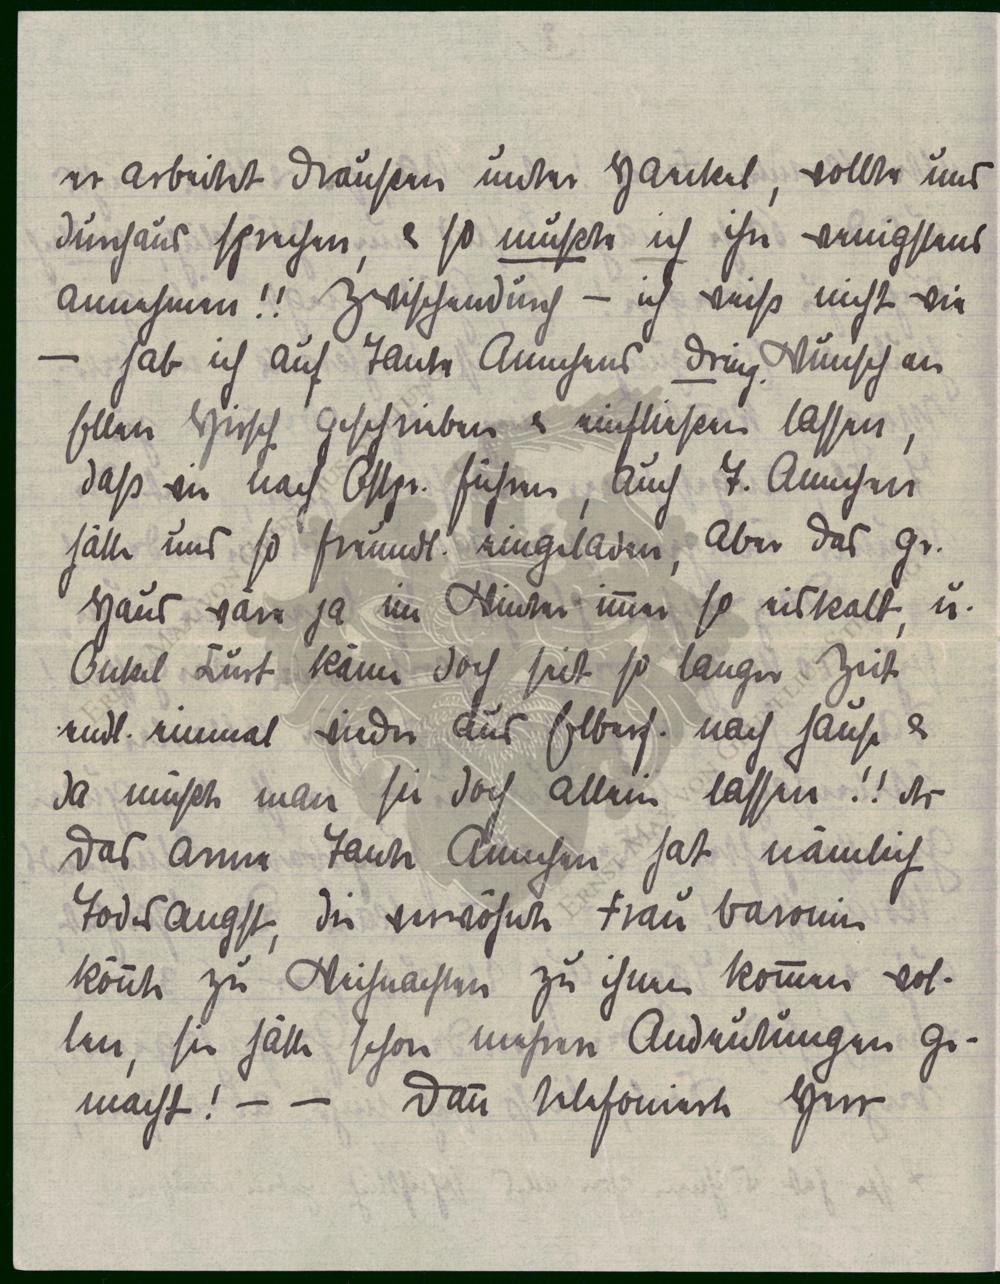 er arbeitet draußen unter Haeckel, wollte uns
durchaus sprechen, & so mußte ich ihn wenigstens
annehmen!! Zwischendurch – ich weiß nicht wie
– hab ich auf Tante Annchens dring. Wunsch an
Ellen Hirsch geschrieben & einfließen lassen,
daß wir nach Ostpr. führen, auch T. Annchen
hätte uns so freundl. eingeladen, aber das gr.
Haus wäre ja im Winter im̅er so eiskalt, u.
Onkel Kurt käme doch seit so langer Zeit
endl. einmal wieder aus Elberf. nach Hause &
da müßte man sie doch allein lassen!!
Das arme Tante Annchen hat nämlich
Todesangst, die verwöhnte Frau Baronin
kön̅te zu Weihnachten zu ihnen kom̅en wol-
len, sie hätte schon mehrere Andeutungen ge-
macht! – – Dan̅ telefonierte Herr
ERNST MAX VON